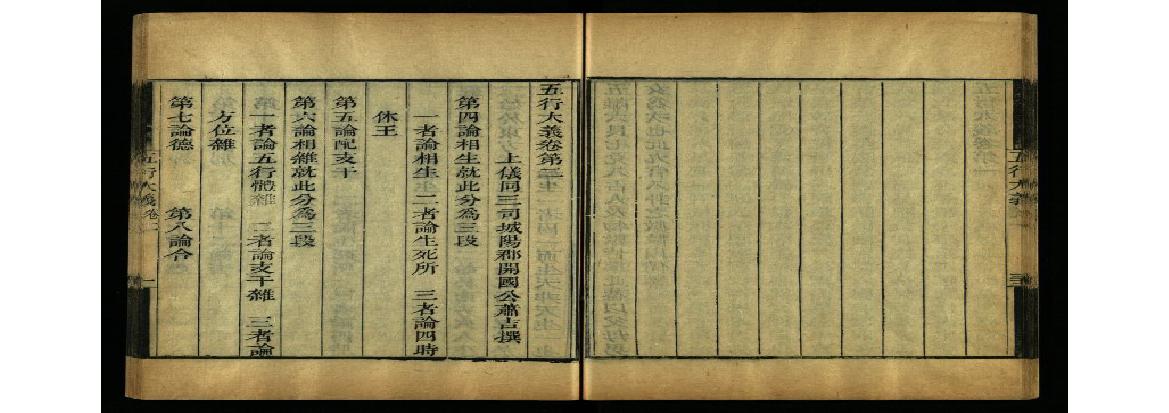 五行大義
五行大義卷第二
上儀同三司城陽郡開國公蕭吉撰
第四論相生就此分為三段
一者論相生 二者論生死所 三者論四時
休王
第五論配支干
第六論相雜就此分為三段
一者論五行體雜 二者論支干雜 三者論
方位雜
第七論德 第八論合
五行大義卷二 一